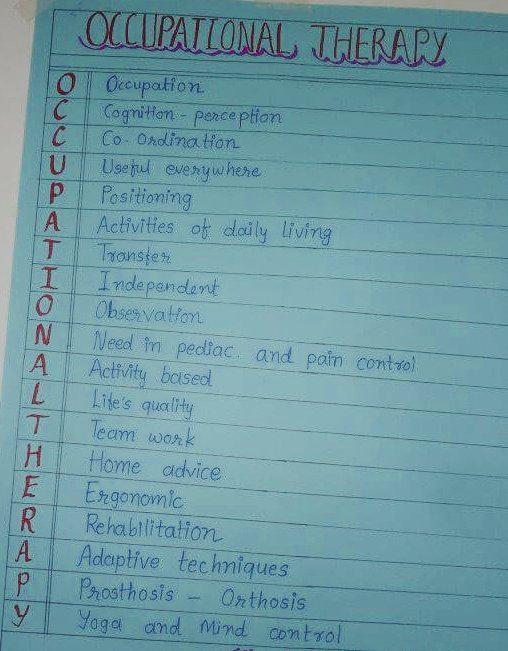 OCCUPATIONAL THERAPY
O Occupation
C Cognition - perception
C Co-Ordination
U Useful everywhere
P Positioning
A Activities of daily living
T Transfer
I Independent
O Observation
N Need in pediac. and pain control
A Activity based
L Life's quality
T Team work
H Home advice
E Ergonomic
R Rehabilitation
A Adaptive techniques
P Prosthosis - Orthosis
Y Yoga and Mind control